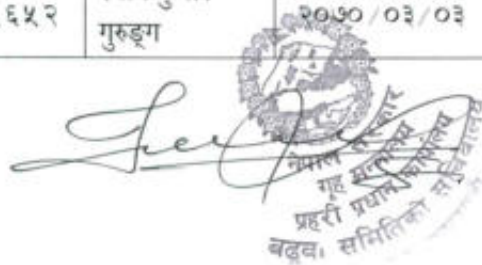 ६५२ गुरुङ्ग २०७०/०३/०३
नेपाल सरकार
गृह मन्त्रालय
प्रहरी प्रधान कार्यालय
बढुवा समितिको सचिवालय